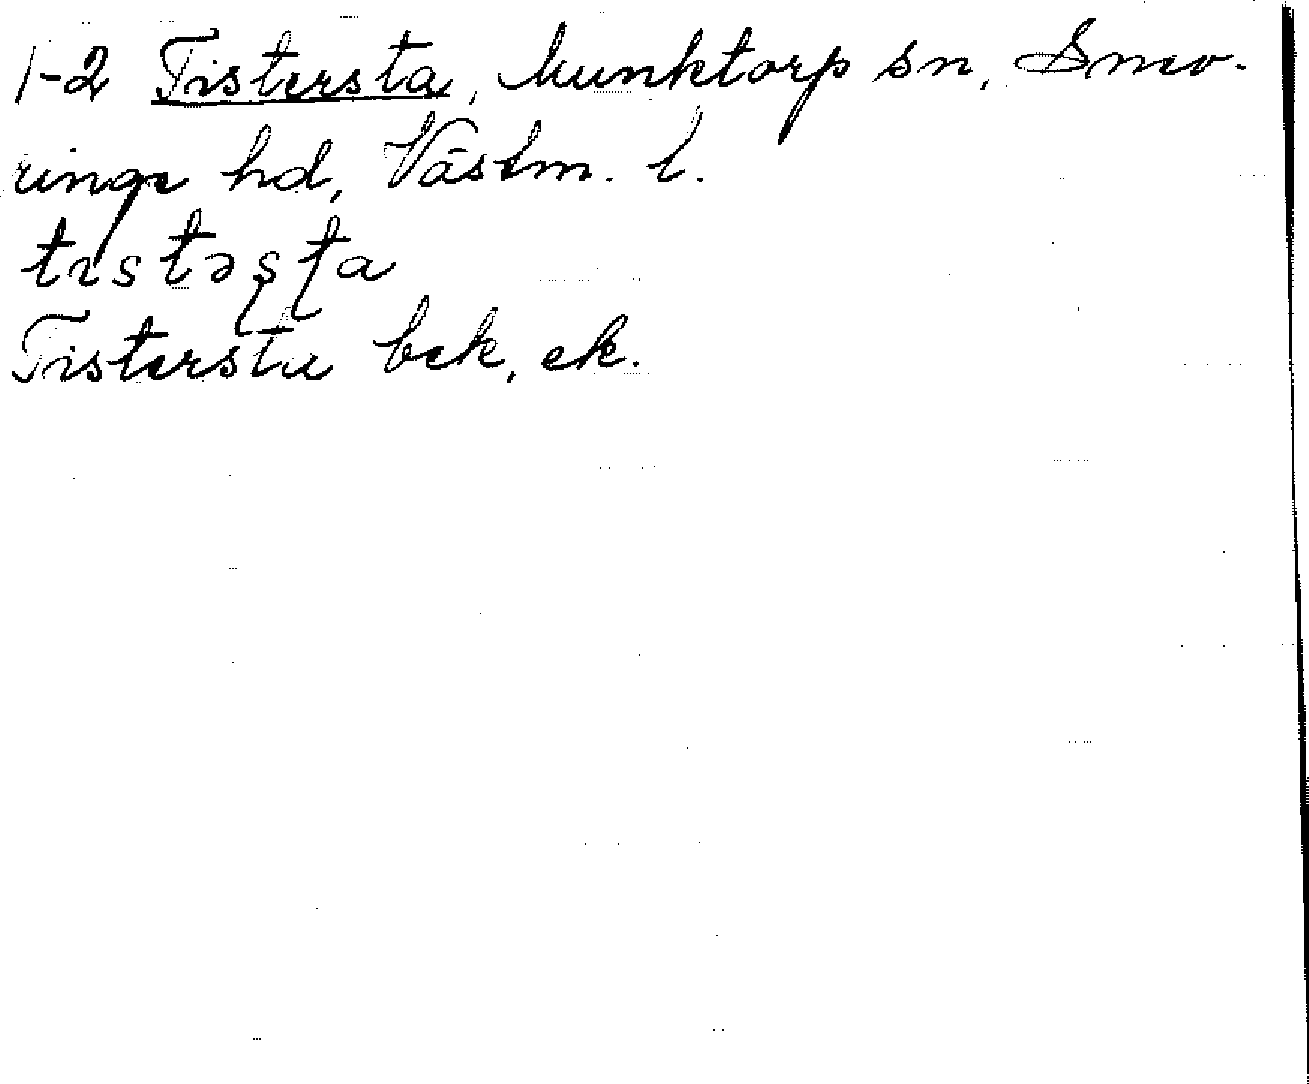 1-2 Tistersta, Munktorp sn, Snev-
ringe hd, Västm. l.
tıstəʂʈa
Tistersta bck, ek.